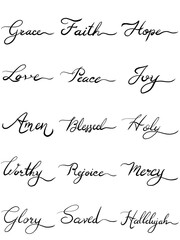 Grace Faith Hope
Love Peace Joy
Amen Blessed Holy
Worthy Rejoice Mercy
Glory Saved Hallelujah